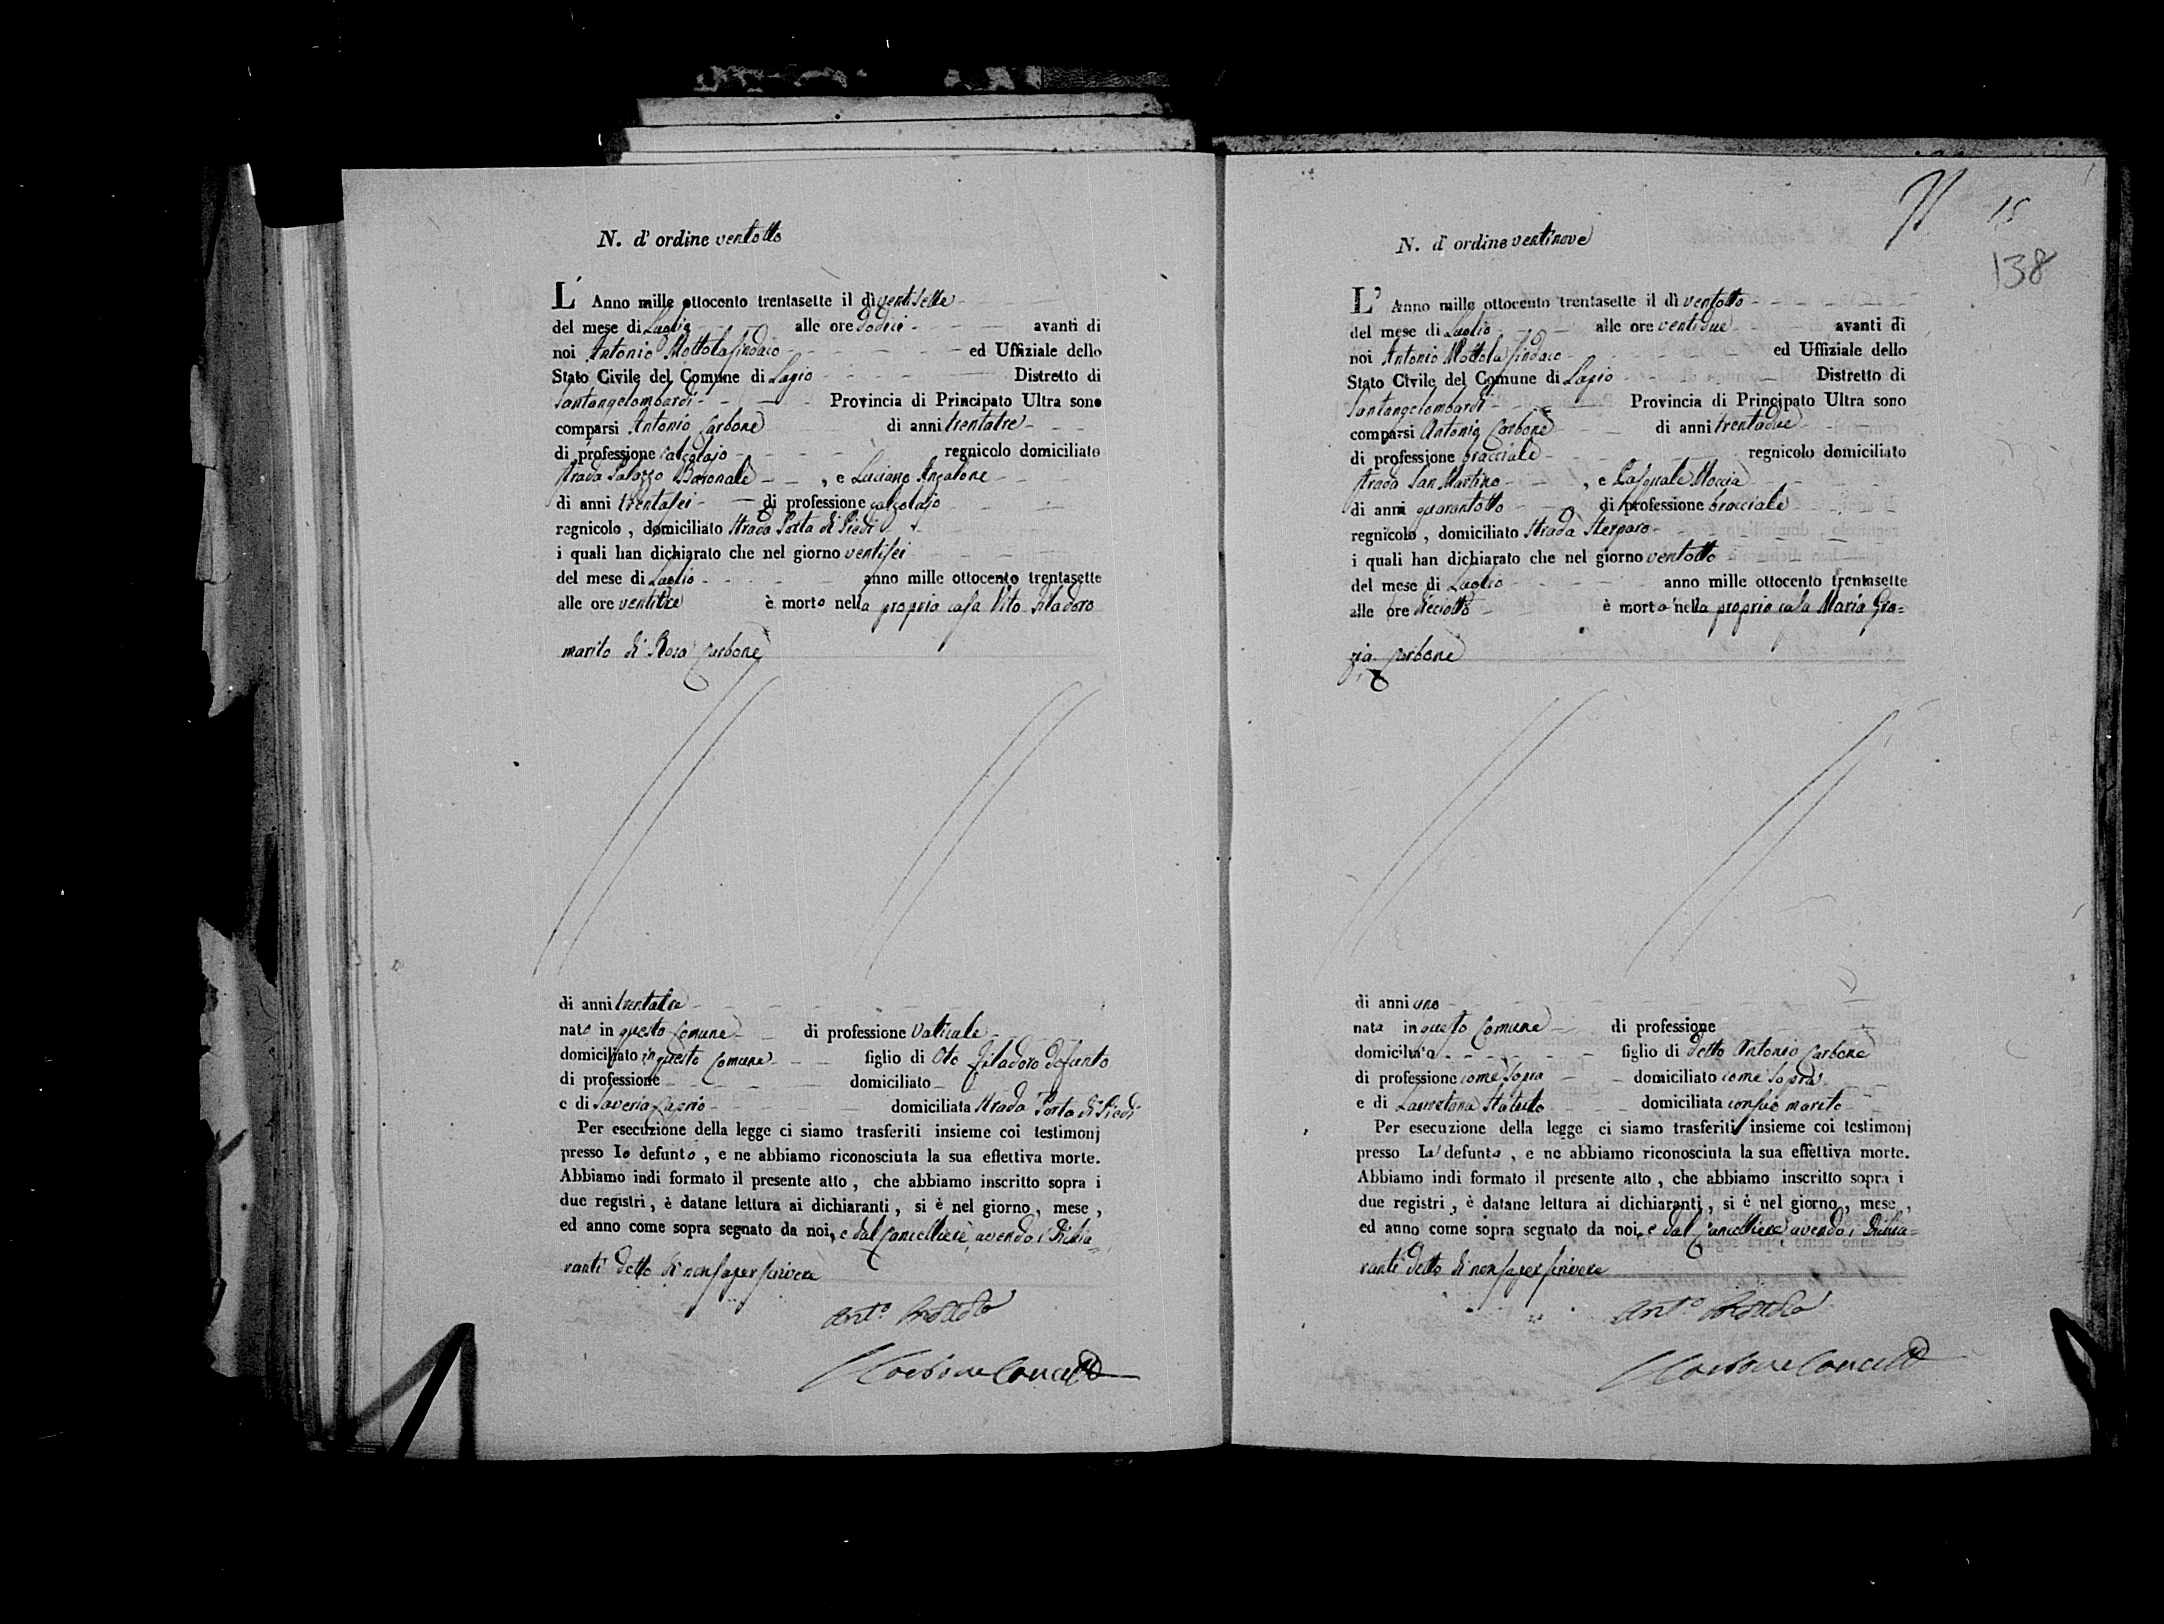 N. d' ordine ventotto
L' Anno mille ottocento trentasette il dì ventisette
del mese di Luglio alle ore dodici avanti di
noi Antonio Mottola Sindaco ed Uffiziale dello
Stato Civile del Comune di Lapio Distretto di
Santangelombardi Provincia di Principato Ultra sono
comparsi Antonio Carbone di anni trentatre
di professione calzolajo regnicolo domiciliato
strada Palazzo Baronale , e Luciano Anzalone
di anni trentasei di professione calzolajo
regnicolo , domiciliato strada Porta di Piedi
i quali han dichiarato che nel giorno ventisei
del mese di Luglio anno mille ottocento trentasette
alle ore ventitre è morto nella propria casa Vito Filadoro
marito di Rosa Carbone
di anni trentatre
nato in questo Comune di professione Vaticale
domiciliato in questo Comune figlio di Oto Filadoro defunto
di professione domiciliato
e di Saveria Caprio domiciliata strada Porta di Piedi
Per esecuzione della legge ci siamo trasferiti insieme coi testimonj
presso lo defunto , e ne abbiamo riconosciuta la sua effettiva morte.
Abbiamo indi formato il presente atto , che abbiamo inscritto sopra i
due registri , è datane lettura ai dichiaranti , si è nel giorno , mese ,
ed anno come sopra segnato da noi, e dal Cancelliere avendo i Dichia=
ranti detto di non saper scrivere
Ant.o Mottola
Carbone Cancell.e
N. d' ordine ventinove
15
138
L' Anno mille ottocento trentasette il dì ventotto
del mese di Luglio alle ore ventidue avanti di
noi Antonio Mottola Sindaco ed Uffiziale dello
Stato Civile del Comune di Lapio Distretto di
Santangelombardi Provincia di Principato Ultra sono
comparsi Antonio Carbone di anni trentadue
di professione bracciale regnicolo domiciliato
strada San Martino , e Pasquale Moccia
di anni quarantotto di professione bracciale
regnicolo , domiciliato strada Sterparo
i quali han dichiarato che nel giorno ventotto
del mese di Luglio anno mille ottocento trentasette
alle ore dieciotto è morta nella propria casa Maria Gra=
zia Carbone
di anni uno
nata in questo Comune di professione
domiciliata figlio di detto Antonio Carbone
di professione come sopra domiciliato come sopra
e di Lauretana Statuto domiciliata con suo marito
Per esecuzione della legge ci siamo trasferiti insieme coi testimonj
presso La defunta , e ne abbiamo riconosciuta la sua effettiva morte.
Abbiamo indi formato il presente atto , che abbiamo inscritto sopra i
due registri , è datane lettura ai dichiaranti , si è nel giorno , mese ,
ed anno come sopra segnato da noi, e dal Cancelliere avendo i Dichia=
ranti detto di non saper scrivere
Ant.o Mottola
Carbone Cancell.e